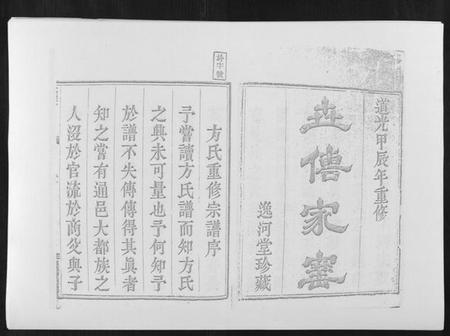 道光甲辰年重修
世傳家寶
逸河堂珍藏
方氏重修宗譜序
予嘗讀方氏譜而知方氏
之興未可量也予何知予
於譜不失傳傳得其眞者
知之嘗有通邑大都族之
人沒於官流於商父與子